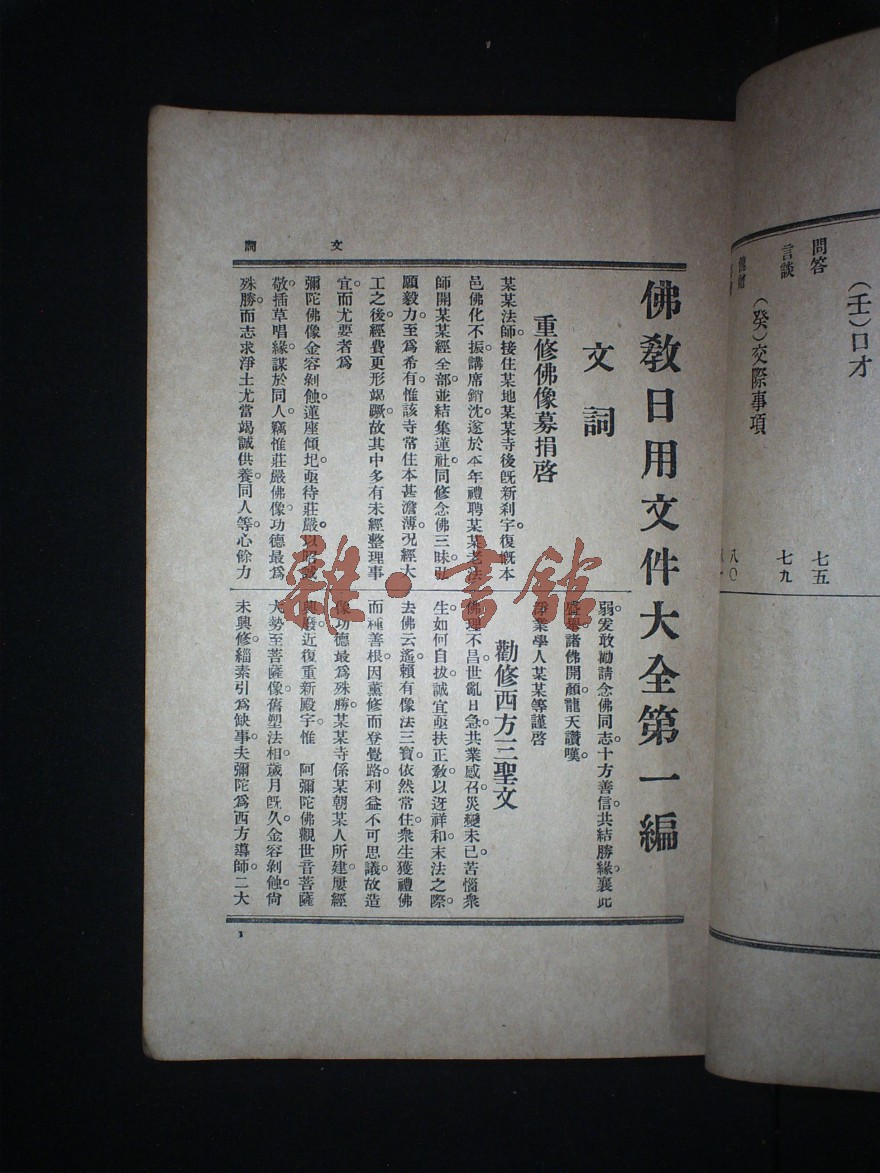 問答
七五
言談
七九
(壬)口才
(癸)交際事項
八〇
佛敎日用文件大全第一編
文詞
重修佛像募捐啓
某某法師。接住某地某某寺後。旣新刹宇。復慨本
邑佛化不振。講席銷沈。遂於本年禮聘某某老法
師開某某經全部。並結集蓮社。同修念佛三昧。弘
願毅力。至爲希有。惟該寺常住本甚澹薄。况經大
工之後。經費更形竭蹶。故其中多有未經整理事
宜。而尤要者。爲
彌陀佛像。金容剝蝕。蓮座傾圯。亟待莊嚴。以昭誠
敬。插草唱緣。謀於同人。竊惟莊嚴佛像。功德最爲
殊勝。而志求淨土。尤當竭誠供養。同人等。心餘力
弱。爰敢勸請念佛同志。十方善信。共結勝緣。襄此
盛舉。諸佛開顏。龍天讚嘆。
淨業學人某某等謹啓
勸修西方三聖文
佛理不昌。世亂日急。共業感召。災變未已。苦惱衆
生。如何自拔。誠宜亟扶正敎。以迓祥和。末法之際。
去佛云遙。賴有像法三寶。依然常住。衆生獲禮佛
而種善根。因薰修而登覺路。利益不可思議。故造
像功德。最爲殊勝。某某寺係某朝某人所建。屢經
興廢。近復重新殿宇。惟 阿彌陀佛觀世音菩薩
大勢至菩薩像。舊塑法相。歲月旣久。金容剝蝕。尙
未興修。緇素引爲缺事。夫彌陀爲西方導師。二大
文詞
1
雜·書館